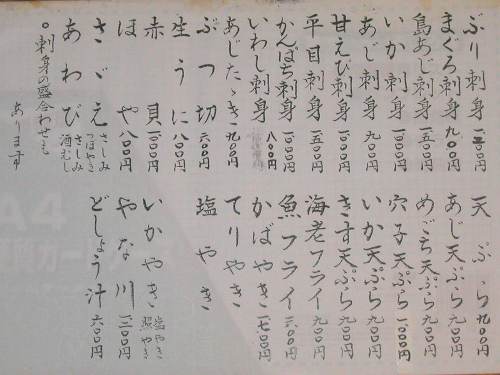 ぶり刺身 一二〇〇円
まぐろ刺身 九〇〇円
島あじ刺身 一五〇〇円
いか刺身 一〇〇〇円
あじ刺身 九〇〇円
甘えび刺身 一〇〇〇円
平目刺身 一五〇〇円
かんぱち刺身 一〇〇〇円
いわし刺身 八〇〇円
あじたゝき 九〇〇円
ぶつ切 六〇〇円
生うに 八〇〇円
赤貝 一〇〇〇円
ほや 八〇〇円
さざえ さしみ つぼやき
あわび さしみ 酒むし
○刺身の盛合わせも
あります
天ぷら 九〇〇円
あじ天ぷら 九〇〇円
めごち天ぷら 九〇〇円
穴子天ぷら 一〇〇〇円
いか天ぷら 九〇〇円
きす天ぷら 九〇〇円
海老フライ 九〇〇円
魚フライ 六〇〇円
かばやき 一七〇〇円
てりやき
塩やき
いかやき 塩やき 照やき
やな川 一二〇〇円
どじょう汁 六〇〇円